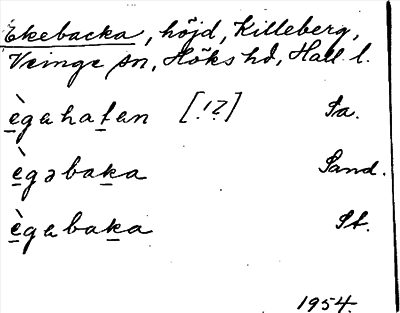 Ekebacka, höjd, Killeberg,
Veinge sn, Höks hd, Hall. l.
ègahatan [!?] Sa.
ègəbaka Sand.
ègabaka St.
1954.